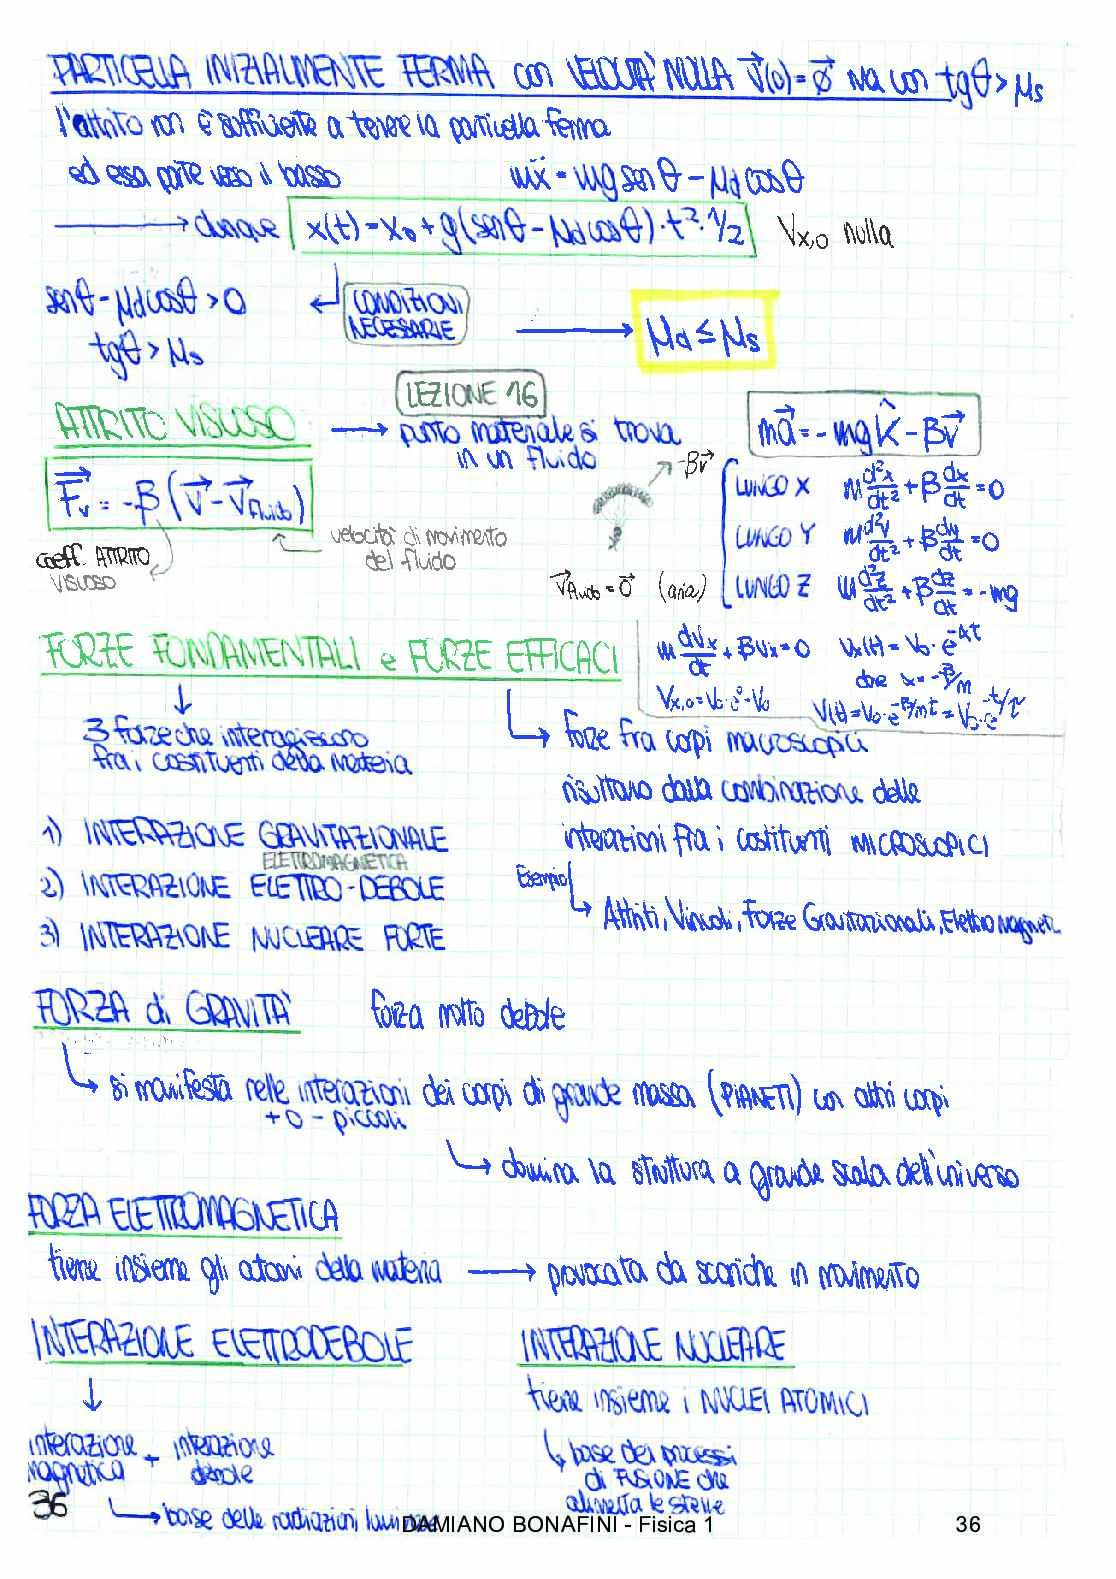 PARTICELLA INIZIALMENTE FERMA con VELOCITÀ NULLA v⃗(0)=0⃗ ma con tgθ > μs
l'attrito non è sufficiente a tenere la particella ferma
ed essa parte verso il basso mẍ = mg senθ - μd cosθ
→ dunque x(t) = x₀ + g(senθ - μd cosθ)·t²·1/2 Vx,0 nulla
senθ - μd cosθ > 0 CONDIZIONI NECESSARIE → μd ≤ μs
tgθ > μs
LEZIONE 16
ATTRITO VISCOSO → punto materiale si trova in un fluido
ma⃗ = -mg k̂ - βv⃗
F⃗v = -β (v⃗ - v⃗fluido)
-βv⃗
coeff. ATTRITO VISCOSO
velocità di movimento del fluido
v⃗fluido = 0⃗ (aria)
LUNGO X m d²x/dt² + β dx/dt = 0
LUNGO Y m d²y/dt² + β dy/dt = 0
LUNGO Z m d²z/dt² + β dz/dt = -mg
m dvx/dt + βvx = 0 vx(t) = v₀·e^-αt
dove α = -β/m
Vx,0 = v₀·e⁰ = v₀ V(t) = v₀·e^-β/m t = v₀·e^-t/τ
FORZE FONDAMENTALI e FORZE EFFICACI
↓
3 forze che interagiscono
fra i costituenti della materia
1) INTERAZIONE GRAVITAZIONALE
ELETTROMAGNETICA
2) INTERAZIONE ELETTRO-DEBOLE
3) INTERAZIONE NUCLEARE FORTE
→ forze fra corpi macroscopici
risultano dalla combinazione delle
interazioni fra i costituenti MICROSCOPICI
Esempio
→ Attriti, Vincoli, Forze Gravitazionali, Elettromagnet.
FORZA di GRAVITÀ forza molto debole
→ si manifesta nelle interazioni dei corpi di grande massa (PIANETI) con altri corpi
+ o - piccoli
→ domina la struttura a grande scala dell'universo
FORZA ELETTROMAGNETICA
tiene insieme gli atomi della materia → provocata da scariche in movimento
INTERAZIONE ELETTRODEBOLE
↓
interazione magnetica + interazione debole
→ base delle radiazioni
INTERAZIONE NUCLEARE
tiene insieme i NUCLEI ATOMICI
→ base dei processi
di FUSIONE che
alimenta le stelle
36
DAMIANO BONAFINI - Fisica 1
36